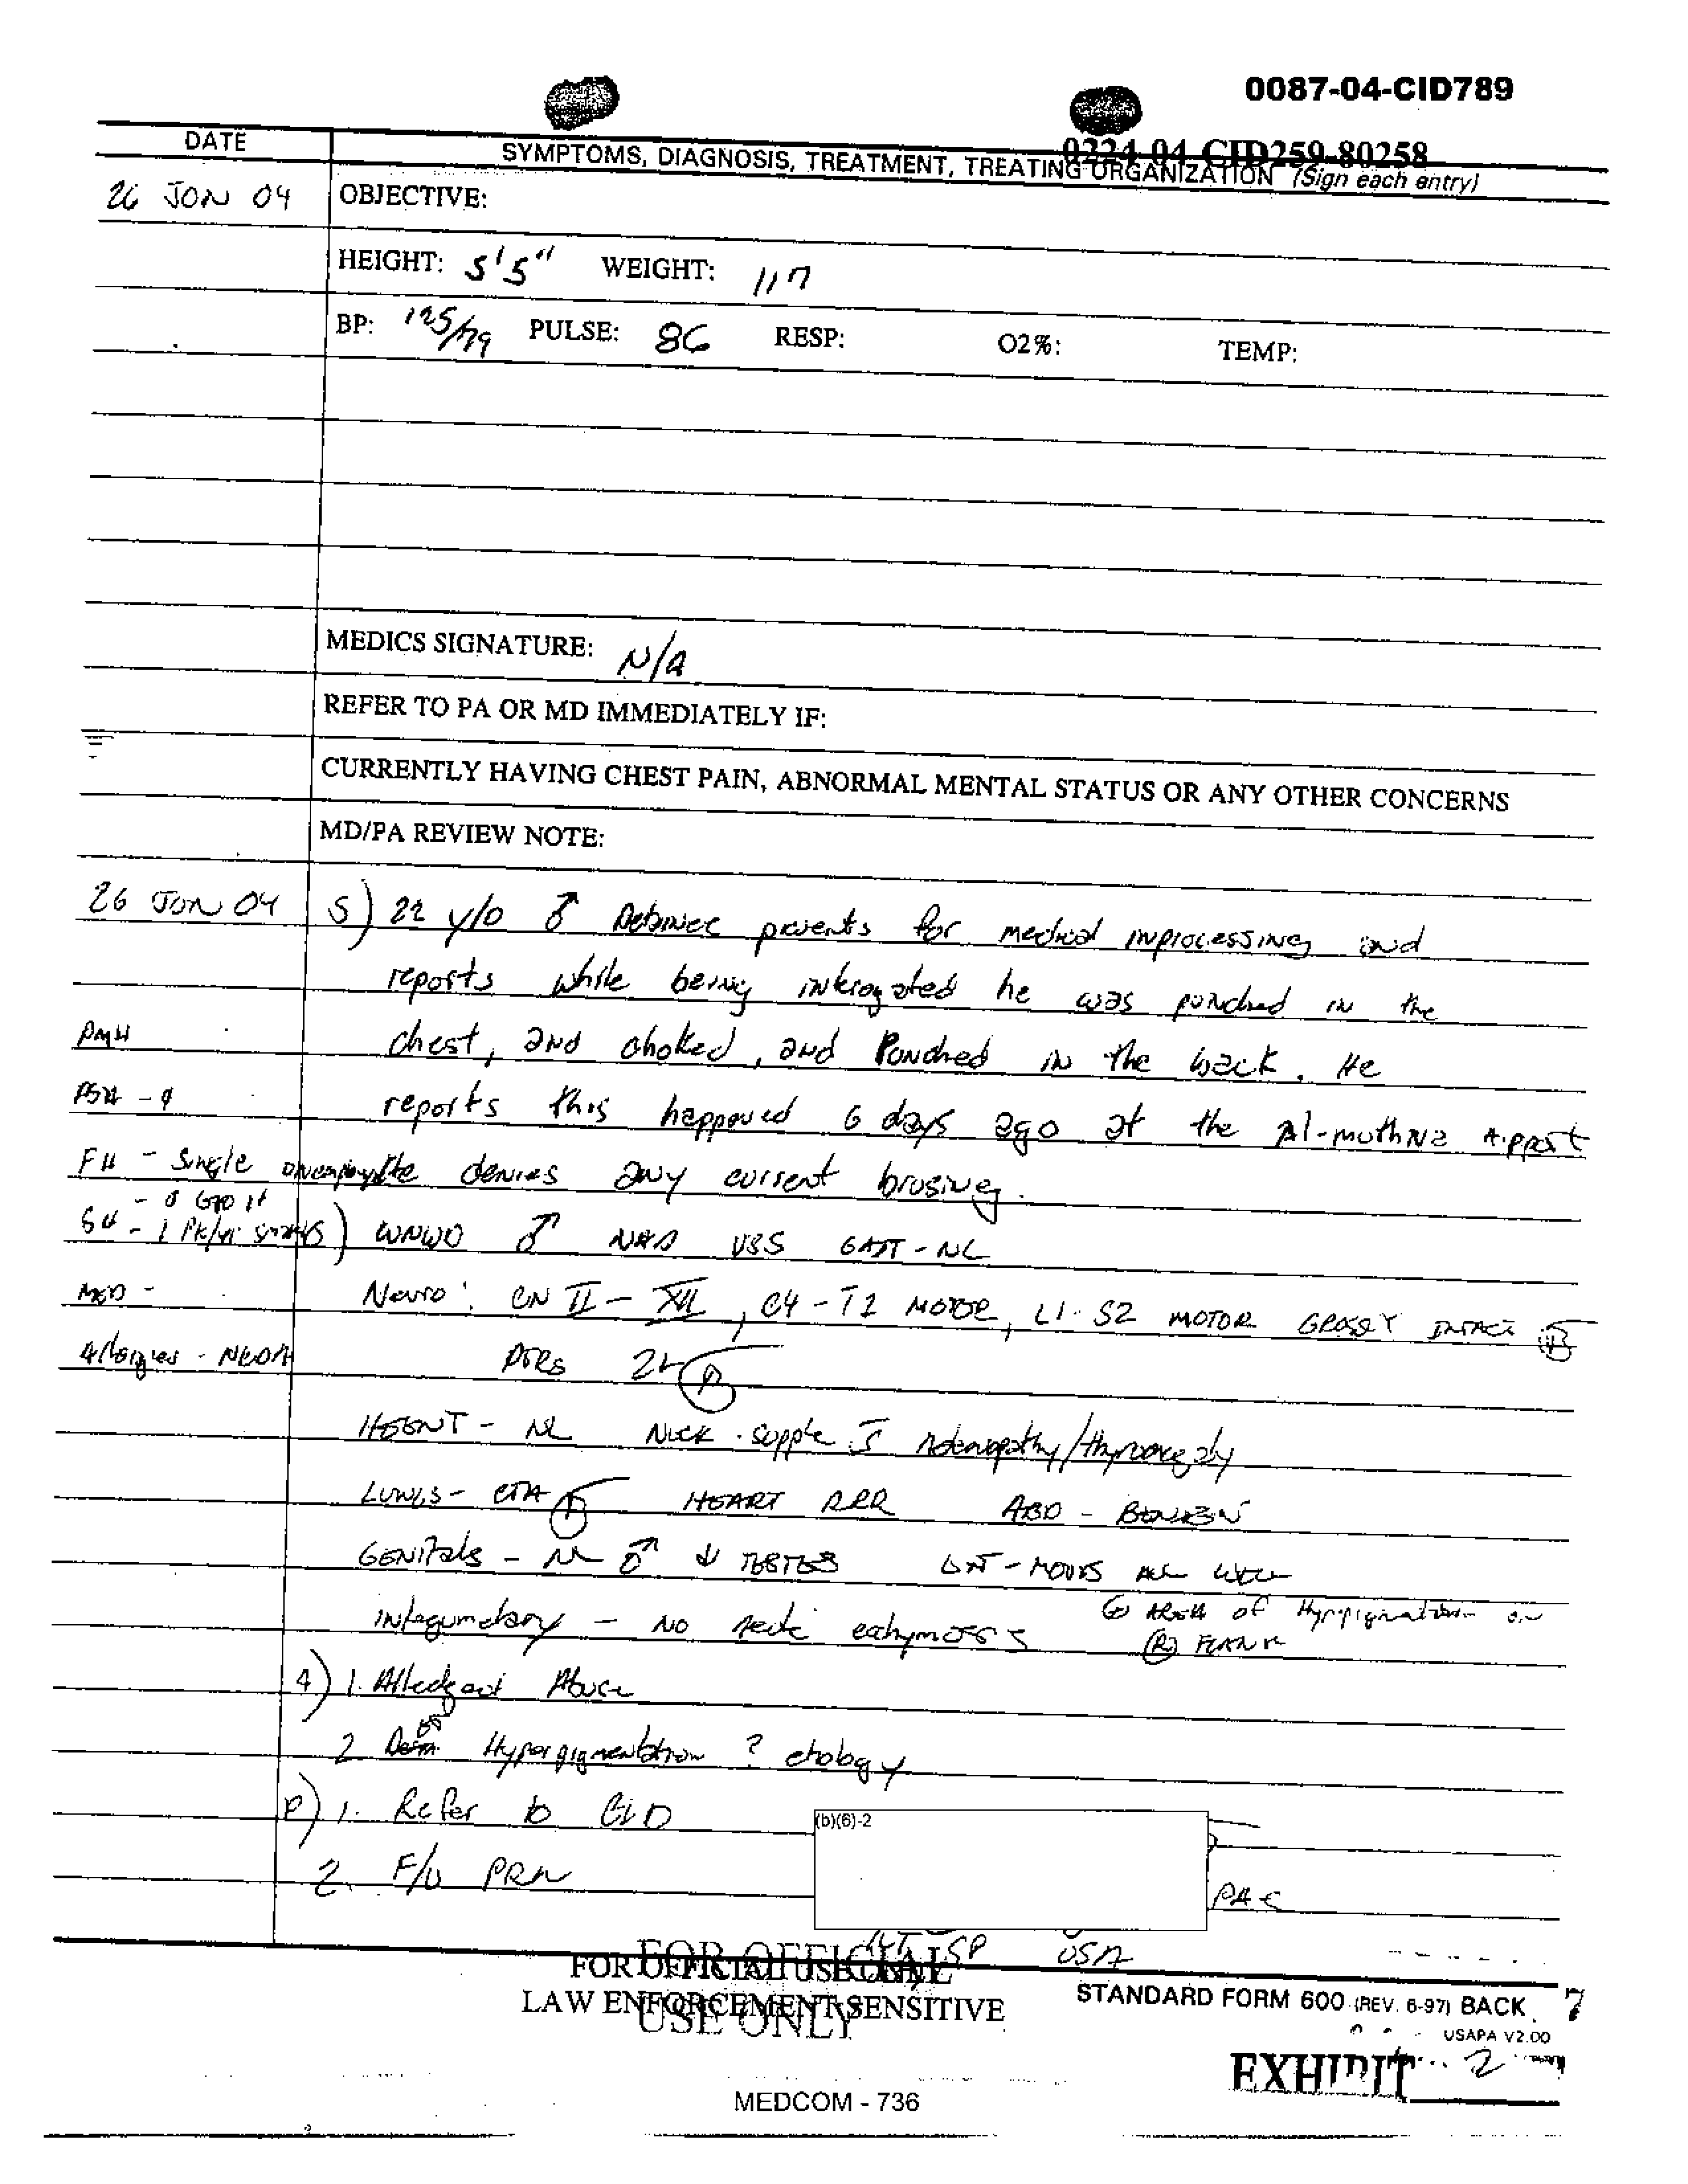 0087-04-CID789
0224-04-CID259-80258
DATE
SYMPTOMS, DIAGNOSIS, TREATMENT, TREATING ORGANIZATION (Sign each entry)
26 JUN 04
OBJECTIVE:
HEIGHT: 5'5" WEIGHT: 117
BP: 125/79 PULSE: 86 RESP: O2%: TEMP:
MEDICS SIGNATURE: N/A
REFER TO PA OR MD IMMEDIATELY IF:
CURRENTLY HAVING CHEST PAIN, ABNORMAL MENTAL STATUS OR ANY OTHER CONCERNS
MD/PA REVIEW NOTE:
26 JUN 04 S) 22 y/o ♂ Detainee presents for medical inprocessing and
reports while being interrogated he was punched in the
PMH chest, and choked, and Punched in the back. He
PSH - reports this happened 6 days ago at the Al-muthna Airport
FH - Single He denies any current brusing.
SH - 1 Pk/ ) WNWD ♂ NAD VSS GAIT - NL
MED - Neuro: CN II - XII, C4 - T1 MOTOR, L1 - S2 MOTOR GROSSLY INTACT
Allergies - NKDA DTRs 2+
HEENT - NL Neck - supple adenopathy/thyromegaly
LUNGS - CTA HEART RRR ABD - BENIGN
GENITALS - NL ♂ ↓ TESTES EXT - MOVES ALL WELL
Integumetary - NO ecchymosis AREA of on
(R) FLANK
A) 1. Alledged Abuse
2 Hyperpigmentation ? etology
P) 1. Refer to CID
(b)(6)-2
2. F/U PRN
PA-C
SP USA
FOR OFFICIAL USE ONLY
FOR OFFICIAL USE ONLY
LAW ENFORCEMENT SENSITIVE
STANDARD FORM 600 (REV. 6-97) BACK 7
USAPA V2.00
EXHIBIT 2
MEDCOM - 736